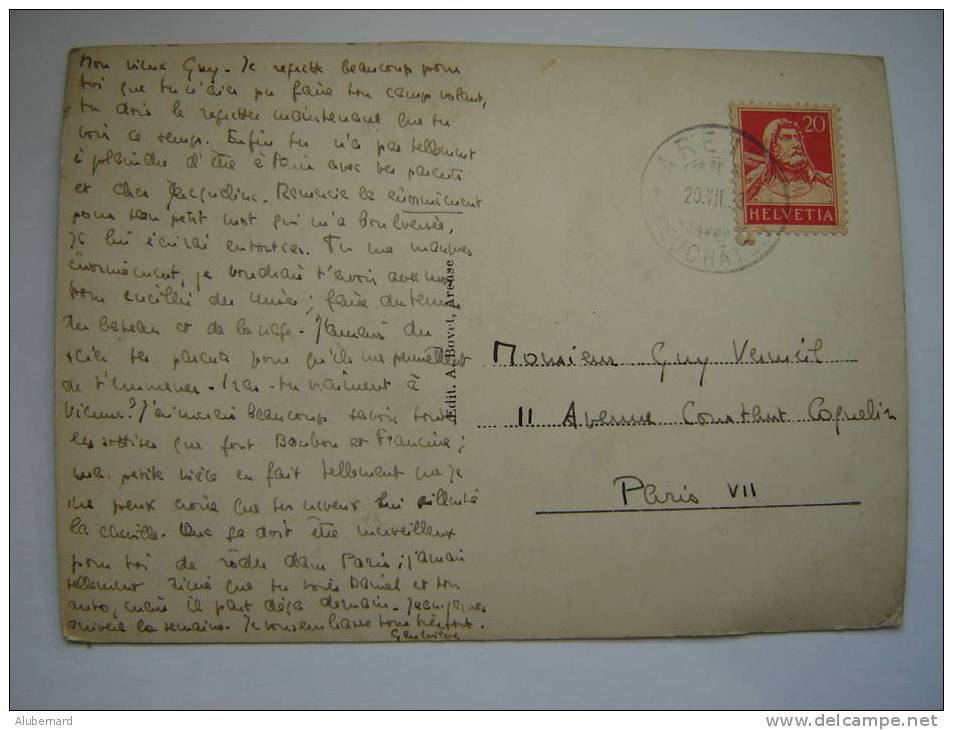 Mon vieux Guy. Je regrette beaucoup pour
toi que tu n'aies pu faire ton camp volant,
tu dois le regretter maintenant que tu
vois ce temps. Enfin tu n'a pas tellement
à plaindre d'être à Paris avec tes parents
et cher Jacqueline. Remercie la énormément
pour son petit mot qui m'a bouleversée,
je lui écrirai entout cas. Tu me manques
énormément, je voudrais t'avoir avec moi
pour cueillir des mûres; faire du tennis
du bateau et de la nage. J'aimerais
scier tes parents pour qu'ils me permettent
de t'emmener. Iras-tu vraiment à
Vienne? J'aimerais beaucoup savoir toutes
les sottises que font Bonbon et Francine;
ma petite nièce en fait tellement que je
ne peux croire que tes neveux lui
la cheville. Que ça doit être merveilleux
pour toi de rôder dans Paris; j'aurais
tellement aimé que tu voies Daniel et son
auto, mais il part déjà demain. Jean-Jacques
arrivera la semaine. Je vous embrasse tous très fort.
Geneviève
Edit. A. Bovet, Areuse
20
HELVETIA
AREUSE
20.VII.3
NEUCHÂTEL
Monsieur Guy Vermeil
11 Avenue Constant Coquelin
Paris VII
Alubernard
www.delcampe.net